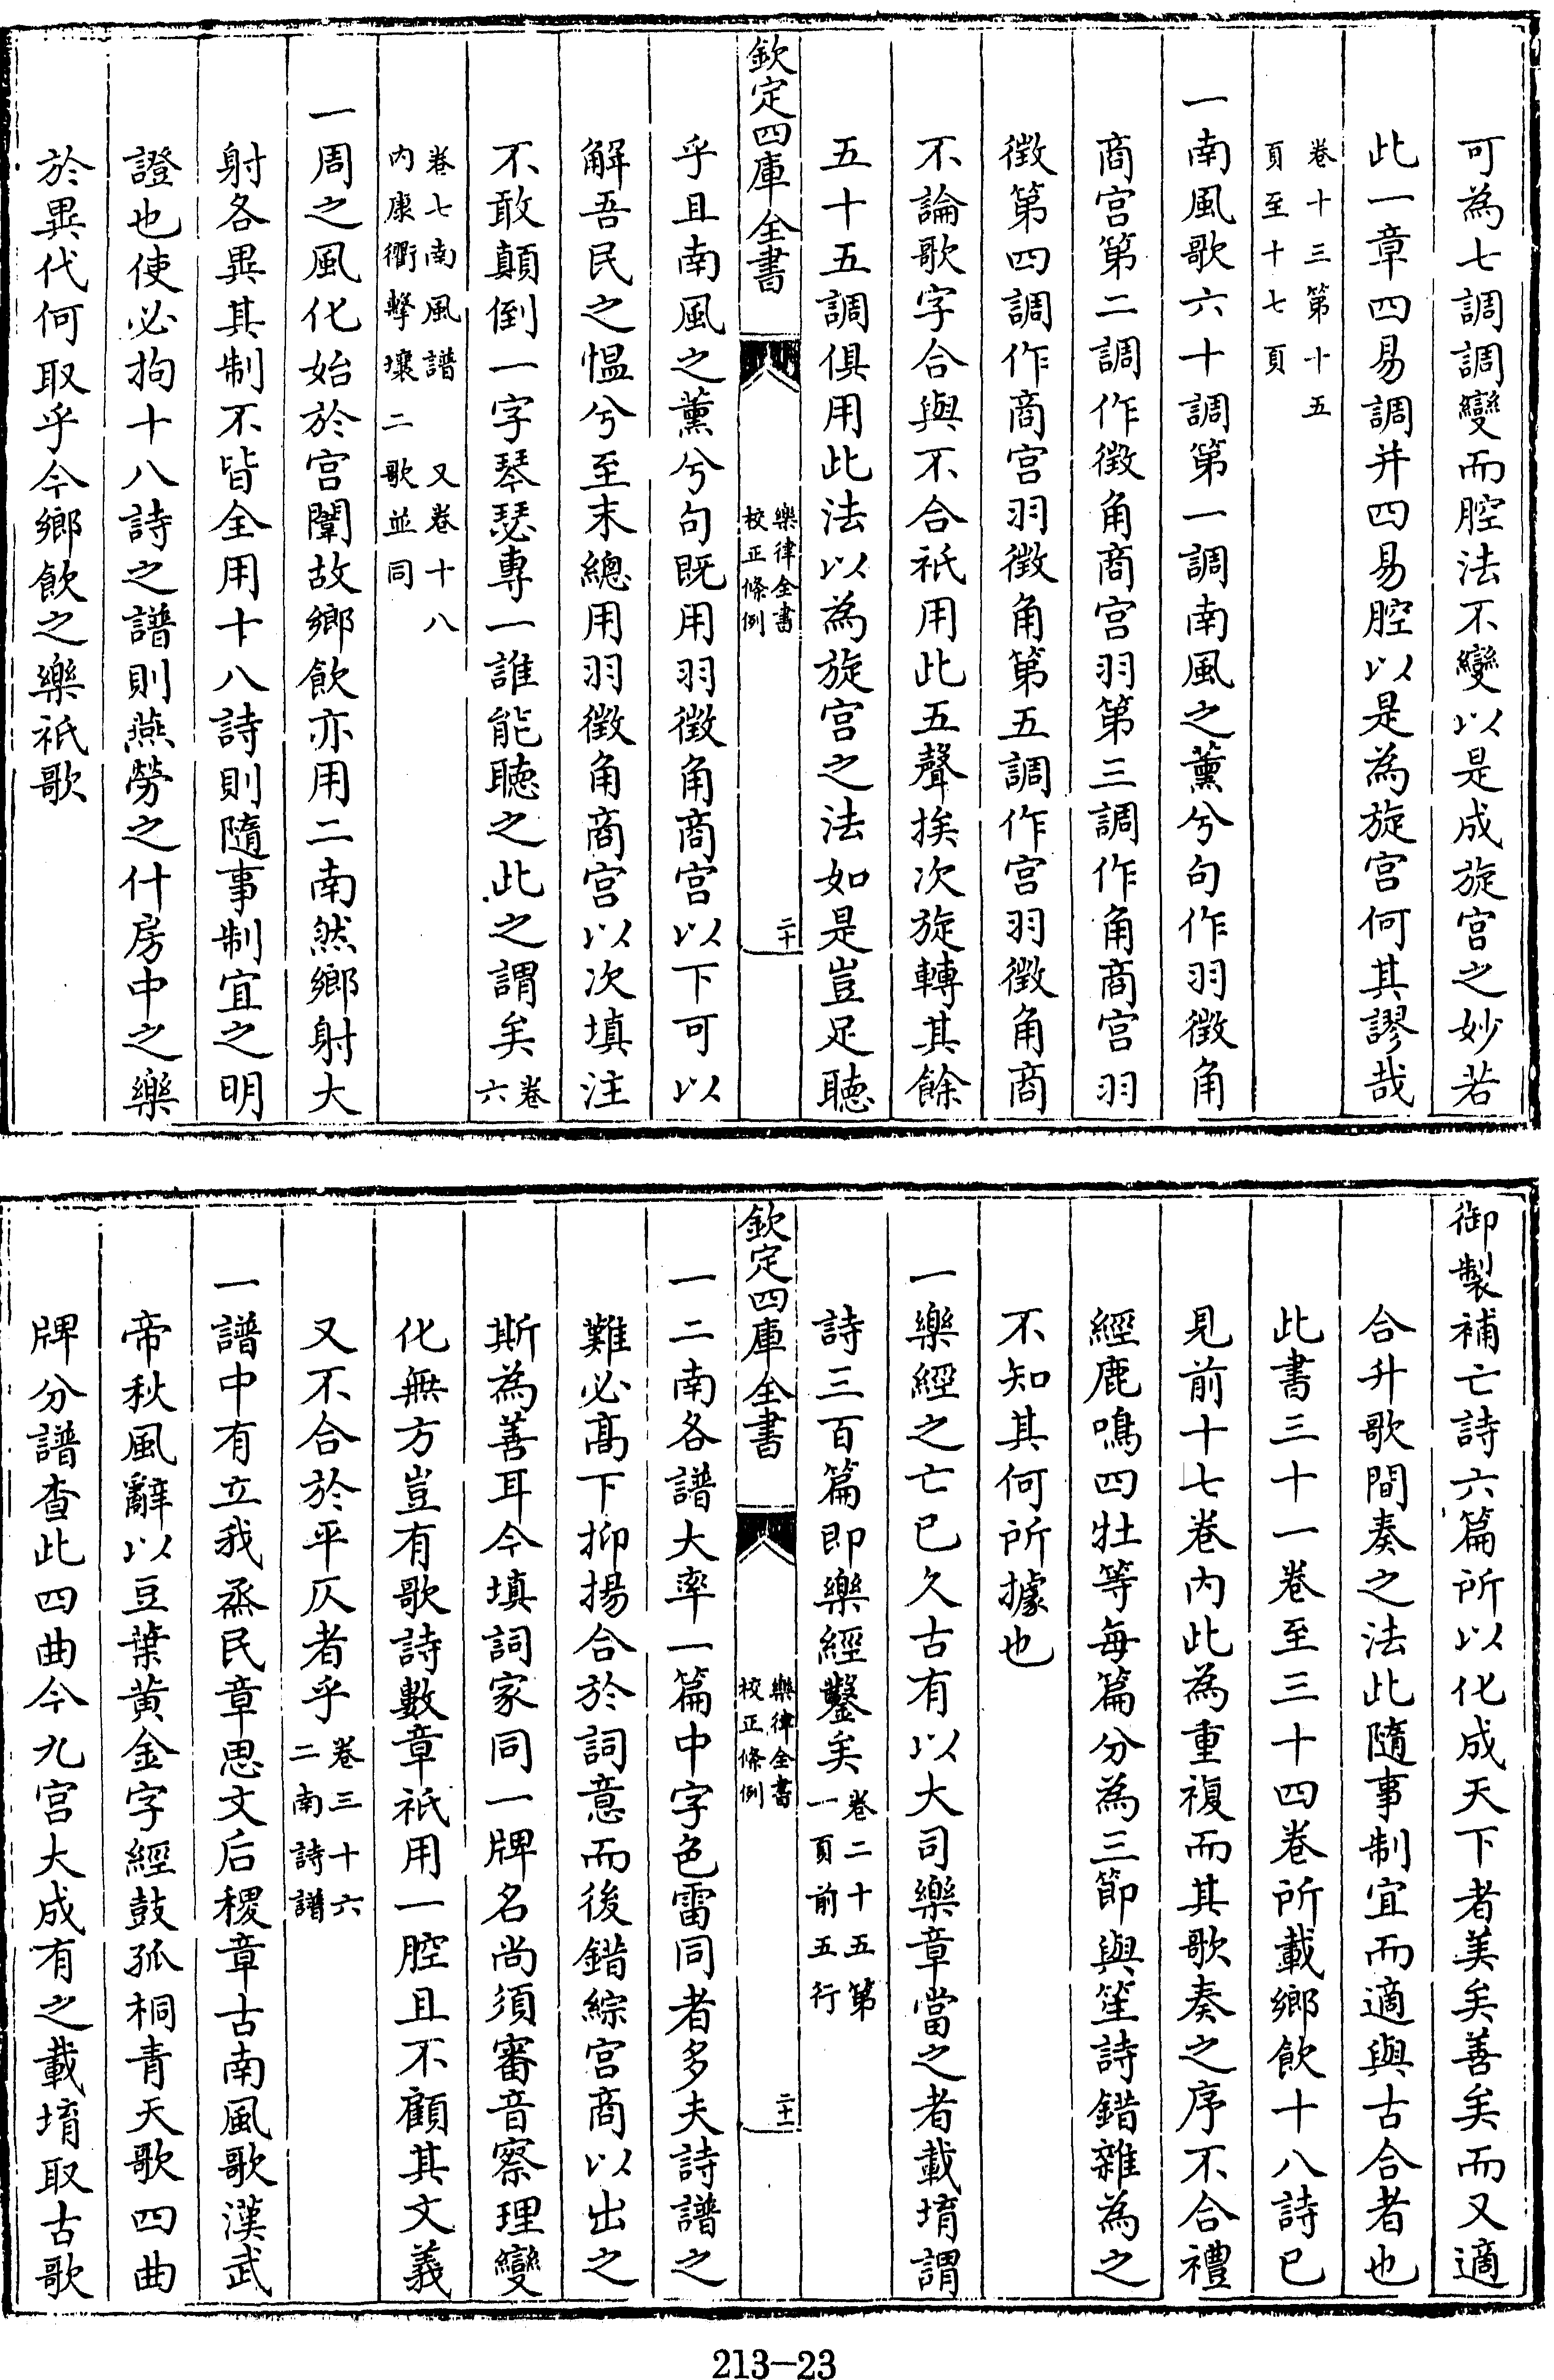 可為七調調變而腔法不變以是成旋宮之妙若
此一章四易調并四易腔以是為旋宮何其謬哉
卷十三第十五
頁至十七頁
一南風歌六十調第一調南風之薰兮句作羽徵角
商宮第二調作徵角商宮羽第三調作角商宮羽
徵第四調作商宮羽徵角第五調作宮羽徵角商
不論歌字合與不合祇用此五聲挨次旋轉其餘
五十五調俱用此法以為旋宮之法如是豈足聽
欽定四庫全書
樂律全書
校正條例
二十
乎且南風之薰兮句既用羽徵角商宮以下可以
解吾民之愠兮至末總用羽徵角商宮以次填注
不敢顛倒一字琴瑟專一誰能聽之此之謂矣卷
六
卷七南風譜 又卷十八
内康衢擊壤二歌並同
一周之風化始於宮闈故鄉飲亦用二南然鄉射大
射各異其制不皆全用十八詩則隨事制宜之明
證也使必拘十八詩之譜則燕勞之什房中之樂
於異代何取乎今鄉飲之樂祇歌
御製補亡詩六篇所以化成天下者美矣善矣而又適
合升歌間奏之法此隨事制宜而適與古合者也
此書三十一卷至三十四卷所載鄉飲十八詩已
見前十七卷内此為重複而其歌奏之序不合禮
經鹿鳴四牡等每篇分為三節與笙詩錯雜為之
不知其何所據也
一樂經之亡已久古有以大司樂章當之者載堉謂
詩三百篇即樂經鑿矣卷二十五第
一頁前五行
欽定四庫全書
樂律全書
校正條例
二十一
一二南各譜大率一篇中字色雷同者多夫詩譜之
難必高下抑揚合於詞意而後錯綜宮商以出之
斯為善耳今填詞家同一牌名尚須審音察理變
化無方豈有歌詩數章祇用一腔且不顧其文義
又不合於平仄者乎卷三十六
二南詩譜
一譜中有立我烝民章思文后稷章古南風歌漢武
帝秋風辭以豆葉黃金字經鼓孤桐青天歌四曲
牌分譜查此四曲今九宮大成有之載堉取古歌
213-23